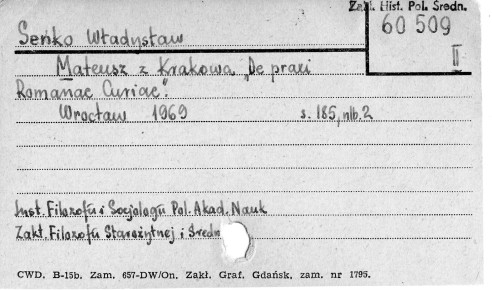 Zakł. Hist. Pol. Średn.
60 509
II
Seńko Władysław
Mateusz z Krakowa „De praxi
Romanae Curiae".
Wrocław 1969 s. 185, nlb. 2
Inst. Filozofii i Socjologii Pol. Akad. Nauk
Zakł. Filozofii Starożytnej i Średn
CWD. B-15b. Zam. 657-DW/On. Zakł. Graf. Gdańsk, zam. nr 1795.